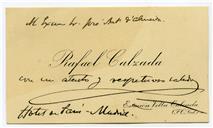 M. Exmo Sr. José Ant. d'Almeida.
Rafael Calzada
con un atento y respetuoso saludo
Estación Villa Calzada
F.C.S.
Hotel de Paris - Madrid.